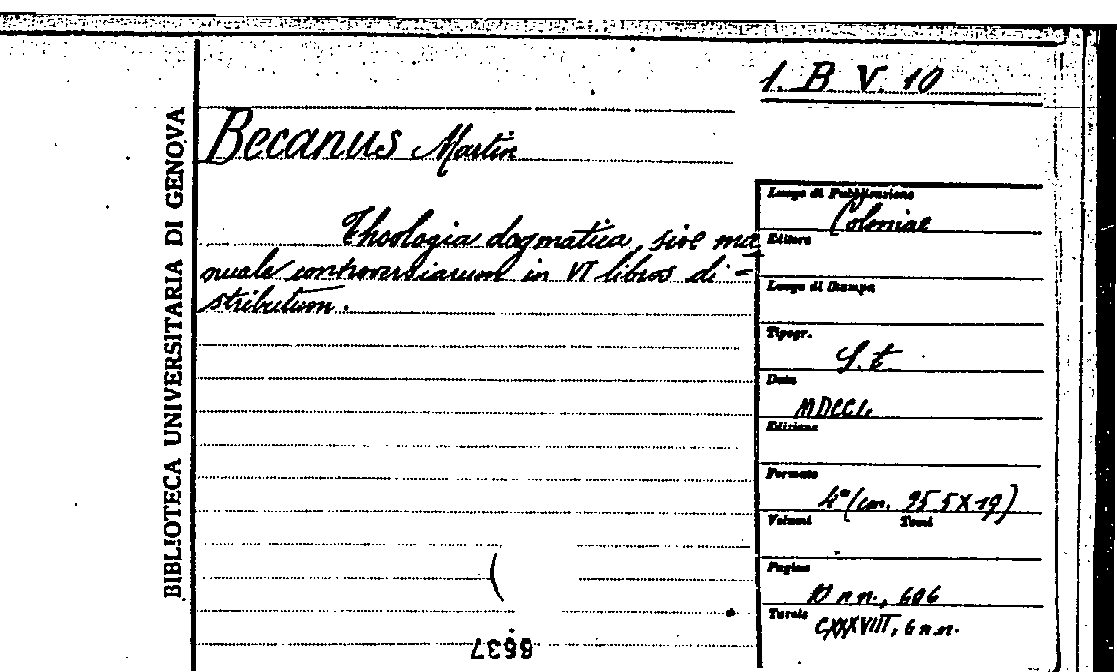 1. B. V. 10
BIBLIOTECA UNIVERSITARIA DI GENOVA
Becanus Martin
Theologia dogmatica, sive ma
nuale controversiarum in VI libros di-
stributum.
Luogo di Pubblicazione
Coloniae
Editore
Luogo di Stampa
Tipogr.
S. t.
Data
MDCCL
Edizione
Formato
4° (cm. 25 5 X 19)
Volumi Tomi
Pagine
10 n.n., 606
Tavole
CXXXVIII, 6 n.n.
8637